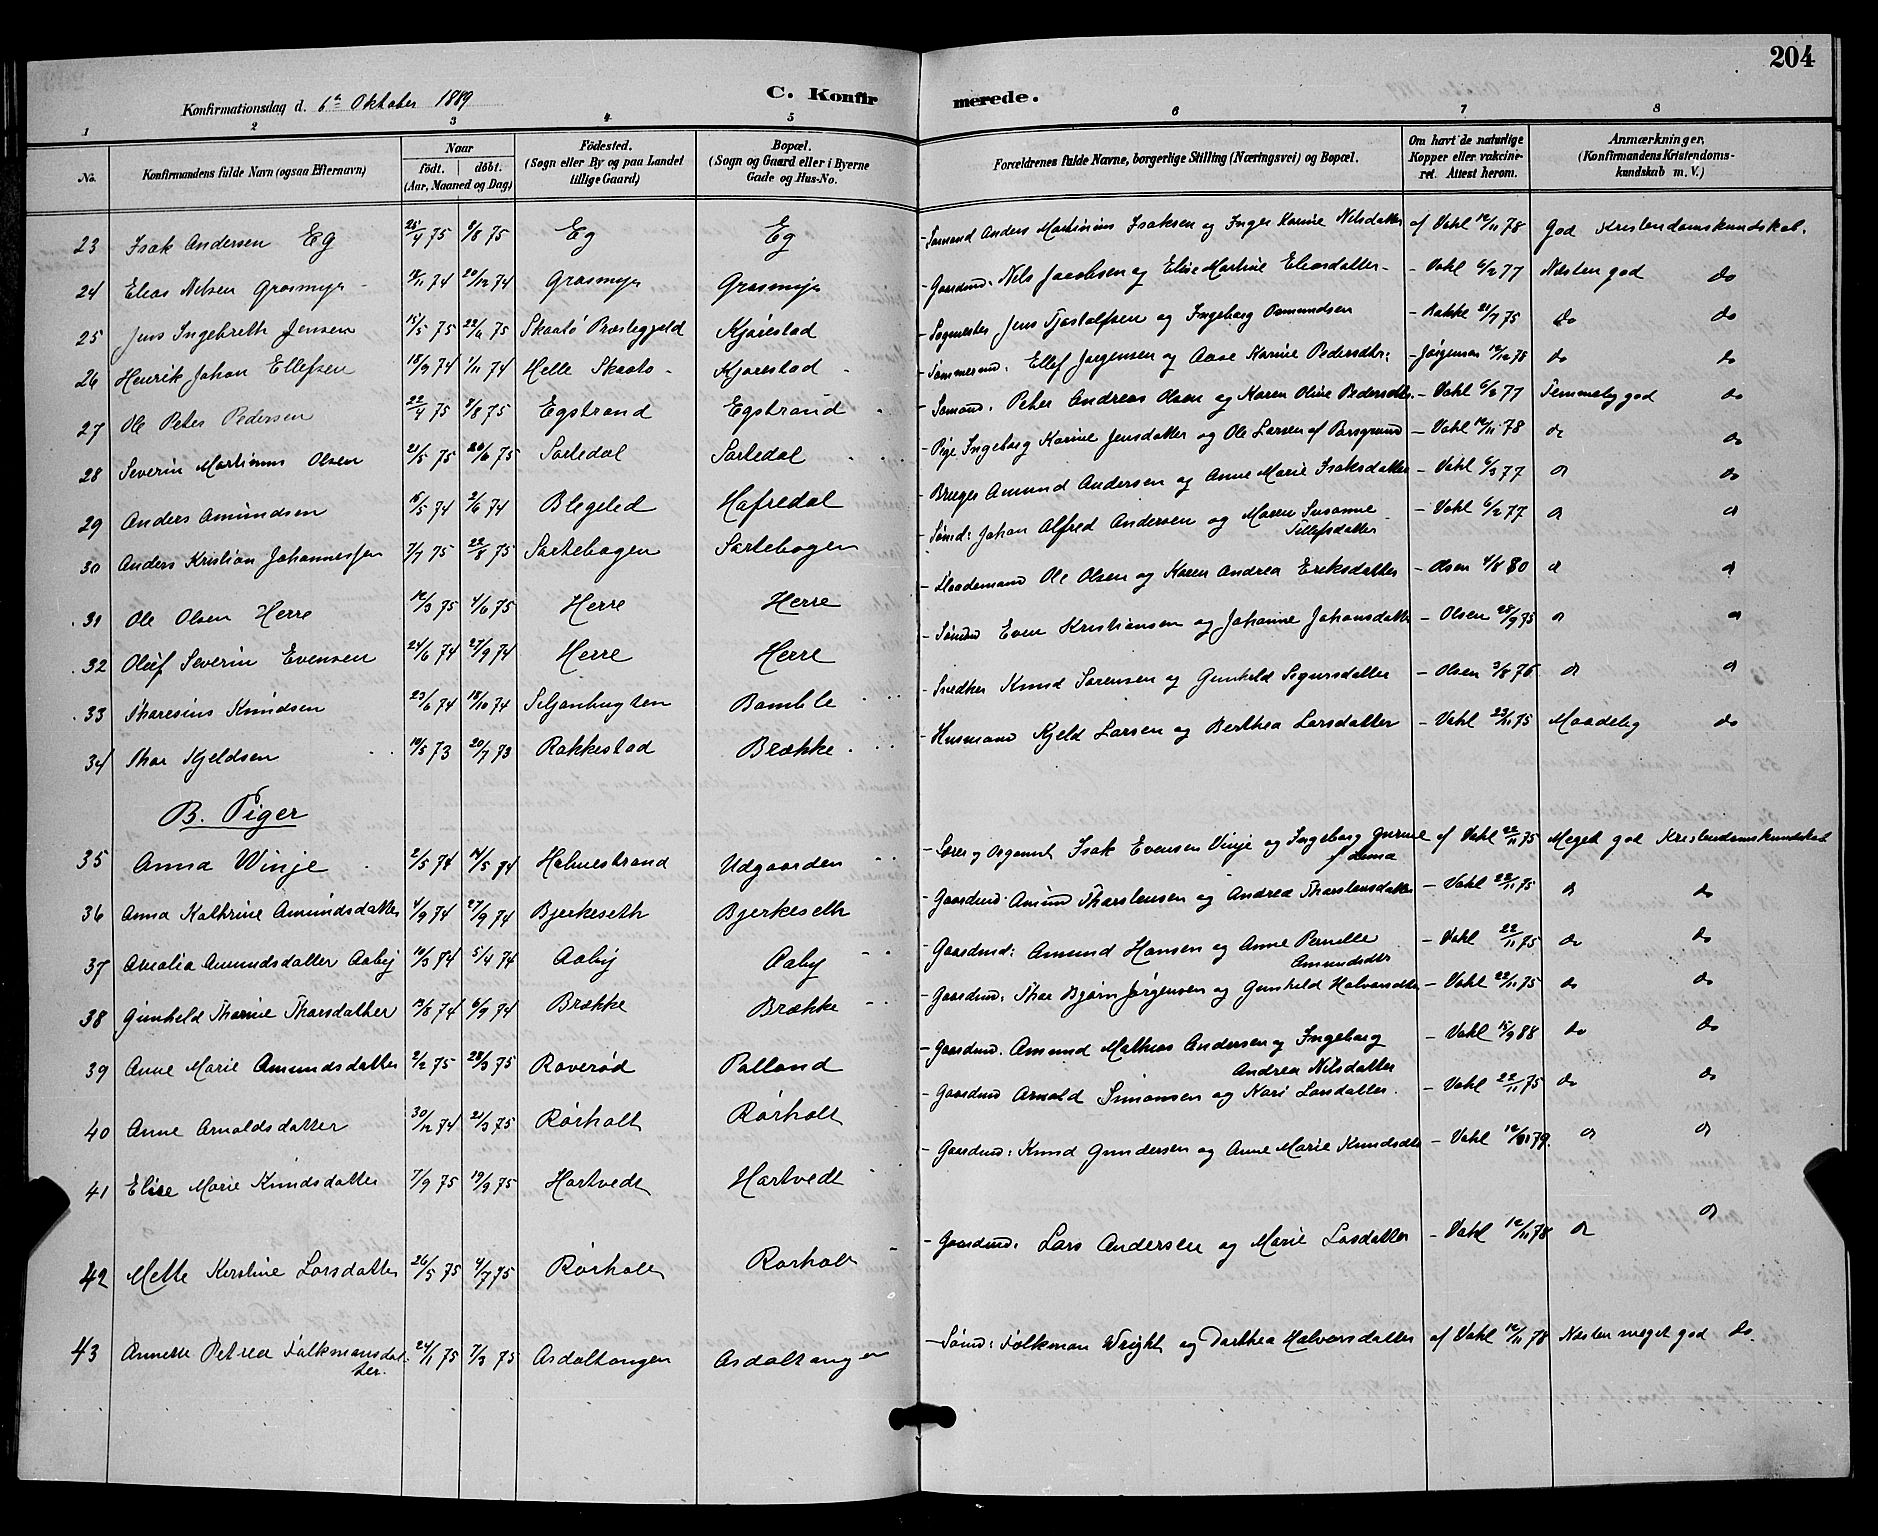 204
Konfirmationsdag d. 6te Oktober 1889 C. Konfirmerede.
1 2 3 4 5 6 7 8
No. Konfirmandens fulde Navn (ogsaa Efternavn) Naar født. døbt. (Aar, Maaned og Dag) Födested. (Sogn eller By og paa Landet tillige Gaard) Bopæl. (Sogn og Gaard eller i Byerne Gade og Hus-No. Forældrenes fulde Navne, borgerlige Stilling (Næringsvei) og Bopæl. Om havt de naturlige Kopper eller vakcineret. Attest herom. Anmærkninger, (Konfirmandens Kristendomskundskab m. V.)
23 Isak Andersen Eg 25/4 75 8/8 75 Eg Eg - Sømand Anders Martinius Isaksen og Inger Karine Nilsdatter af Vahl 12/11 78 God Kristendomskundskab.
24 Elias Nilsen Grasmyr 18/11 74 20/12 74 Grasmyr Grasmyr - Gaardmd. Nils Jacobsen og Elise Martine Eliasdatter - Vahl 6/2 77 Næsten god do
25 Jens Ingebreth Jensen 15/5 75 22/6 75 Skaatö Præstegjeld Kjørestad - Sagmester Jens Tjostolfsen og Ingeborg Osmundsen - Bakke 21/7 75 do do
26 Henrik Johan Ellefsen 18/9 74 1/11 74 Helle Skaato Kjørestad - Tømmermd. Ellef Jørgensen og Aase Karine Pedersdtr: - Jørgensen 12/12 78 do do
27 Ole Peter Pedersen 22/4 75 8/8 75 Egstrand Egstrand - Sømand. Peter Andreas Olsen og Karen Oline Pedersdtr. - Vahl 6/2 77 Temmelig god do
28 Severin Martinius Olsen 21/5 75 20/6 75 Sortedal Sortedal - Pige Ingeborg Karine Jensdatter og Ole Larsen af Porsgrund - Vahl 12/11 78 do do
29 Anders Amundsen 15/5 74 2/6 74 Blegelid Hafredal - Bruger Amund Andersen og Anne Marie Isaksdatter - Vahl 6/3 77 do do
30 Anders Kristian Johannessen 7/7 75 22/8 75 Sartebogen Sartebogen - Sømd: Johan Alfred Andersen og Maren Susanne Tellefsdatter - Vahl 6/2 77 do do
31 Ole Olsen Herre 12/3 75 4/6 75 Herre Herre - Flaademand Ole Olsen og Karen Andrea Eriksdatter - Olsen 4/8 80 do do
32 Oluf Severin Evensen 24/6 74 27/9 74 Herre Herre - Sømd Even Kristiansen og Johanne Johansdatter - Olsen 28/9 75 do do
33 Thoresius Knudsen 23/6 74 18/10 74 Seljanbugten Bamble - Snedker Knud Sørensen og Gunhild Sigursdatter - Olsen 3/8 76 do do
34 Thor Kjeldsen 19/5 73 20/7 73 Rakkestad Brække - Husmand Kjeld Larsen og Berthea Larsdatter - Vahl 23/11 75 Maadelig do
B. Piger
35 Anna Winje 2/5 74 14/5 74 Holmestrand Udgaarden - Lærer og Organist Isak Evensen Vinje og Ingeborg Gurine f. Lema af Vahl 22/11 75 Meget god Kristendomskundskab
36 Anna Kathrine Amundsdatter 4/9 74 27/9 74 Bjerkeseth Bjerkeseth - Gaardmd Amund Thorstensen og Andrea Thorstensdatter - Vahl 22/11 75 do do
37 Amalia Amundsdatter Aaby 10/3 74 5/4 74 Aaby Aaby - Gaardmd: Amund Hansen og Anne Pernelle Amundsdtr - Vahl 22/11 75 do do
38 Gunhild Thorine Thorsdatter 12/8 74 6/9 74 Brække Brække - Gaardmd: Thor Bjørn Jørgensen og Gunhild Halvorsdtr - Vahl 22/11 75 do do
39 Anne Marie Amundsdatter 2/2 75 28/3 75 Roverød Palland - Gaardmd. Amund Mathias Andersen og Ingeborg Andrea Nilsdatter - Vahl 15/9 88 do do
40 Anne Arnoldsdatter 30/12 74 21/3 75 Rørholt Rørholt - Gaardmd Arnold Simonsen og Kari Larsdatter. - Vahl 22/11 75 do do
41 Elise Marie Knudsdatter 7/9 75 19/9 75 Hartvedt Hartvedt - Gaardmd: Knud Gundersen og Anne Marie Knudsdtr - Vahl 12/11 79. do do
42 Mette Kirstine Larsdatter 26/5 75 4/7 75 Rørholt Rørholt - Gaardmd: Lars Andersen og Marie Larsdatter - Vahl 12/11 78 do do
43 Annette Petrea Folkmansdatter. 24/1 75 7/3 75 Asdaltangen Asdaltangen - Sømd: Folkman Wright og Dorthea Halvorsdatter af Vahl 12/11 78 Næsten meget god do.